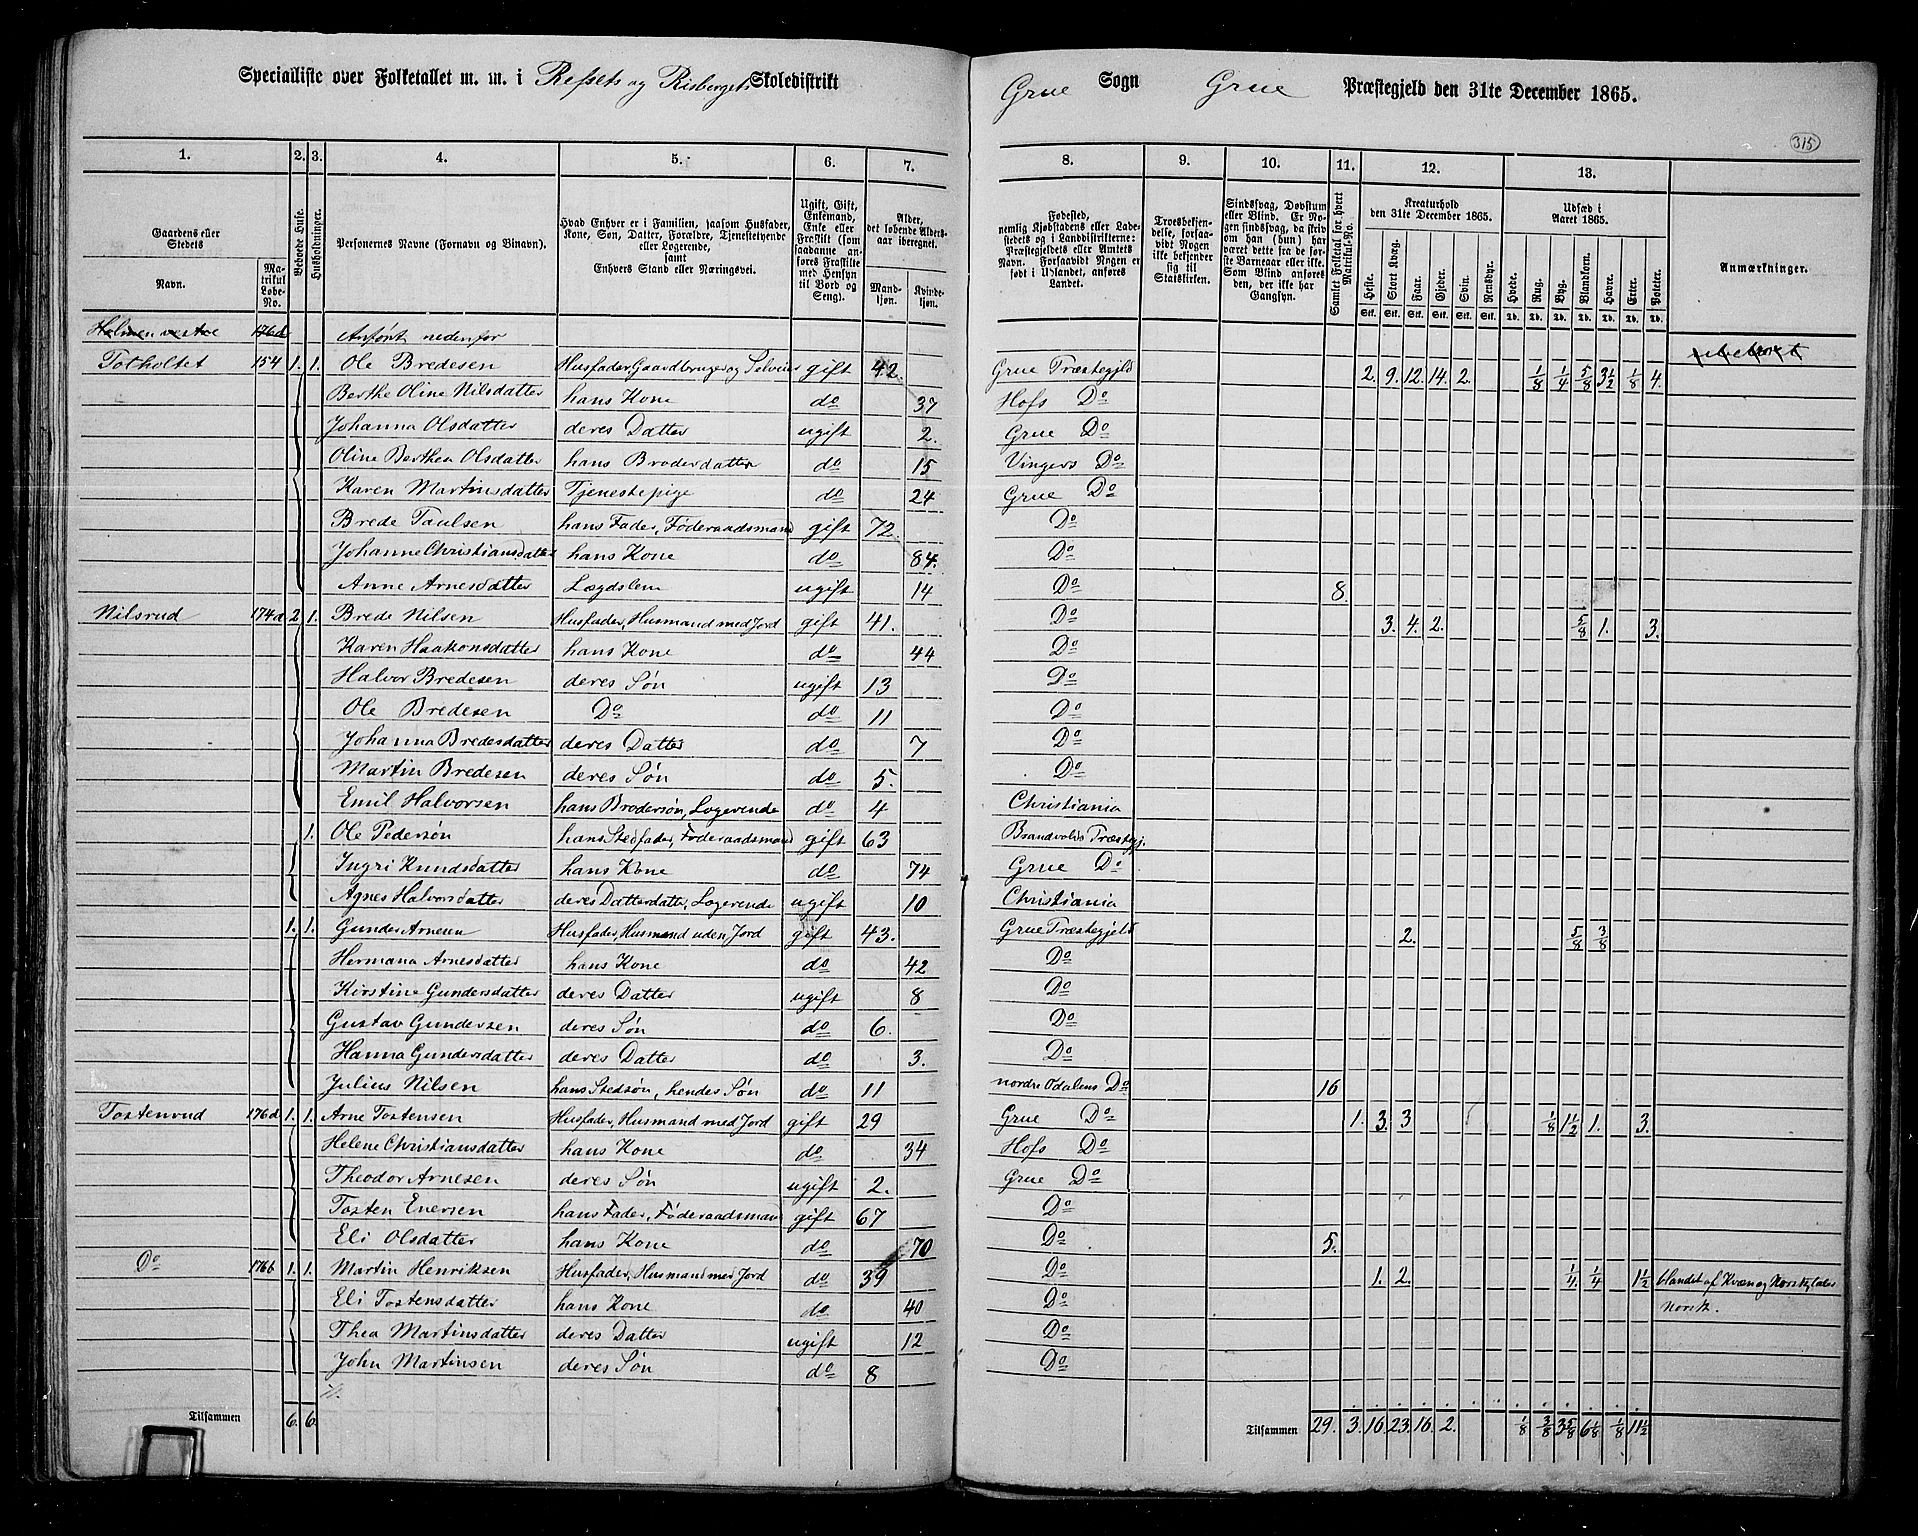 Specialliste over Folketallet m. m. i Refsets og Risbergets Skoledistrikt Grue Sogn Grue Præstegjeld den 31te December 1865.
315
1. 2. 3. 4. 5. 6. 7. 8. 9. 10. 11. 12. 13.
Gaardens eller Stedets Navn. Matrikul Løbe-No. Beboede Huse. Husholdninger. Personernes Navne (Fornavn og Binavn). Hvad Enhver er i Familien, saasom Husfader, Kone, Søn, Datter, Forældre, Tjenestetyende eller Logerende, samt Enhvers Stand eller Næringsvei. Ugift, Gift, Enkemand, Enke eller Fraskilt (som saadanne anføres Fraskilte med Hensyn til Bord og Seng). Alder, det løbende Aldersaar iberegnet. Mandkjøn. Kvindekjøn.
Fødested, nemlig Kjøbstadens eller Ladestedets og i Landdistrikterne: Præstegjeldets eller Amtets Navn. Forsaavidt Nogen er født i Udlandet, anføres Landet. Troesbekjendelse, forsaavidt Nogen ikke bekjender sig til Statskirken. Sindssvag, Døvstum eller Blind. Er Nogen sindssvag, da skriv om han (hun) har været dette fra de første Barneaar eller ikke. Som Blind anføres den, der ikke har Gangsyn. Samlet Folketal for hvert Matrikul-No. Kreaturhold den 31te December 1865. Udsæd i Aaret 1865. Anmærkninger.
Heste. Stort Kvæg. Faar. Gjeder. Svin. Rensdyr. Hvede. Rug. Byg. Blandkorn. Havre. Erter. Poteter.
Stk. Stk. Stk. Stk. Stk. Stk. Td. Td. Td. Td. Td. Td. Td.
Holmen vestre 176d Anført nedenfor ubeboet
Totholtet 154 1. 1. Ole Bredesen Husfader, Gaardbruger og Selveier gift 42. Grue Præstegjeld 2. 9. 12. 14. 2. 1/8 1/4 5/8 3 1/2 1/8 4.
Berthe Oline Nilsdatter hans Kone do 37 Hofs Do
Johanna Olsdatter deres Datter ugift 2. Grue Do
Oline Berthea Olsdatter hans Broderdatter do 15 Vingers Do
Karen Martinsdatter Tjenestepige do 24 Grue Do
Brede Paulsen hans Fader, Føderaadsmand gift 72. Do
Johanne Christiansdatter hans Kone do 84. Do
Anne Arnesdatter Lægdslem ugift 14 Do 8.
Nilsrud 174a 2 1. Brede Nilsen Husfader, Husmand med Jord gift 41. Do 3. 4. 2. 5/8 1. 3.
Karen Haakonsdatter hans Kone do 44 Do
Halvor Bredesen deres Søn ugift 13 Do
Ole Bredesen Do do 11 Do
Johanna Bredesdatter deres Datter do 7 Do
Martin Bredesen deres Søn do 5. Do
Emil Halvorsen hans Brodersøn, Logerende do 4 Christiania
1. Ole Pedersøn hans Stedfader, Føderaadsmand gift 63 Brandvolds Præstegj.
Ingri Knudsdatter hans Kone do 74 Grue Do
Agnes Halvorsdatter deres Datterdatter, Logerende ugift 10 Christiania
1. 1. Gunder Arnesen Husfader, Husmand uden Jord gift 43. Grue Præstegjeld 2. 5/8 3/8
Hermana Arnesdatter hans Kone do 42 Do
Kirstine Gundersdatter deres Datter ugift 8 Do
Gustav Gundersen deres Søn do 6. Do
Hanna Gundersdatter deres Datter do 3. Do
Julius Nilsen hans Stedsøn, hendes Søn do 11 nordre Odalens Do 16
Tostenrud 176a 1. 1. Arne Tostensen Husfader, Husmand med Jord gift 29 Grue Do 1. 3. 3 1/8 1 1/2 1. 3.
Helene Christiansdatter hans Kone do 34 Hofs Do
Theodor Arnesen deres Søn ugift 2. Grue Do
Tosten Enersen hans Fader, Føderaadsmand gift 67 Do
Eli Olsdatter hans Kone do 70 Do 5.
Do 176b 1. 1. Martin Henriksen Husfader, Husmand med Jord do 39 Do 1. 2. 1/4 1/4 1 1/2 blandet af Kvæn og Norsk, taler
Eli Tostensdatter hans Kone do 40 Do Norsk.
Thea Martinsdatter deres Datter ugift 12 Do
John Martinsen deres Søn do 8 Do
Tilsammen 6. 6. Tilsammen 29. 3. 16. 23. 16. 2. 1/8 3/8 3 5/8 6 1/8 1/8 11 1/2